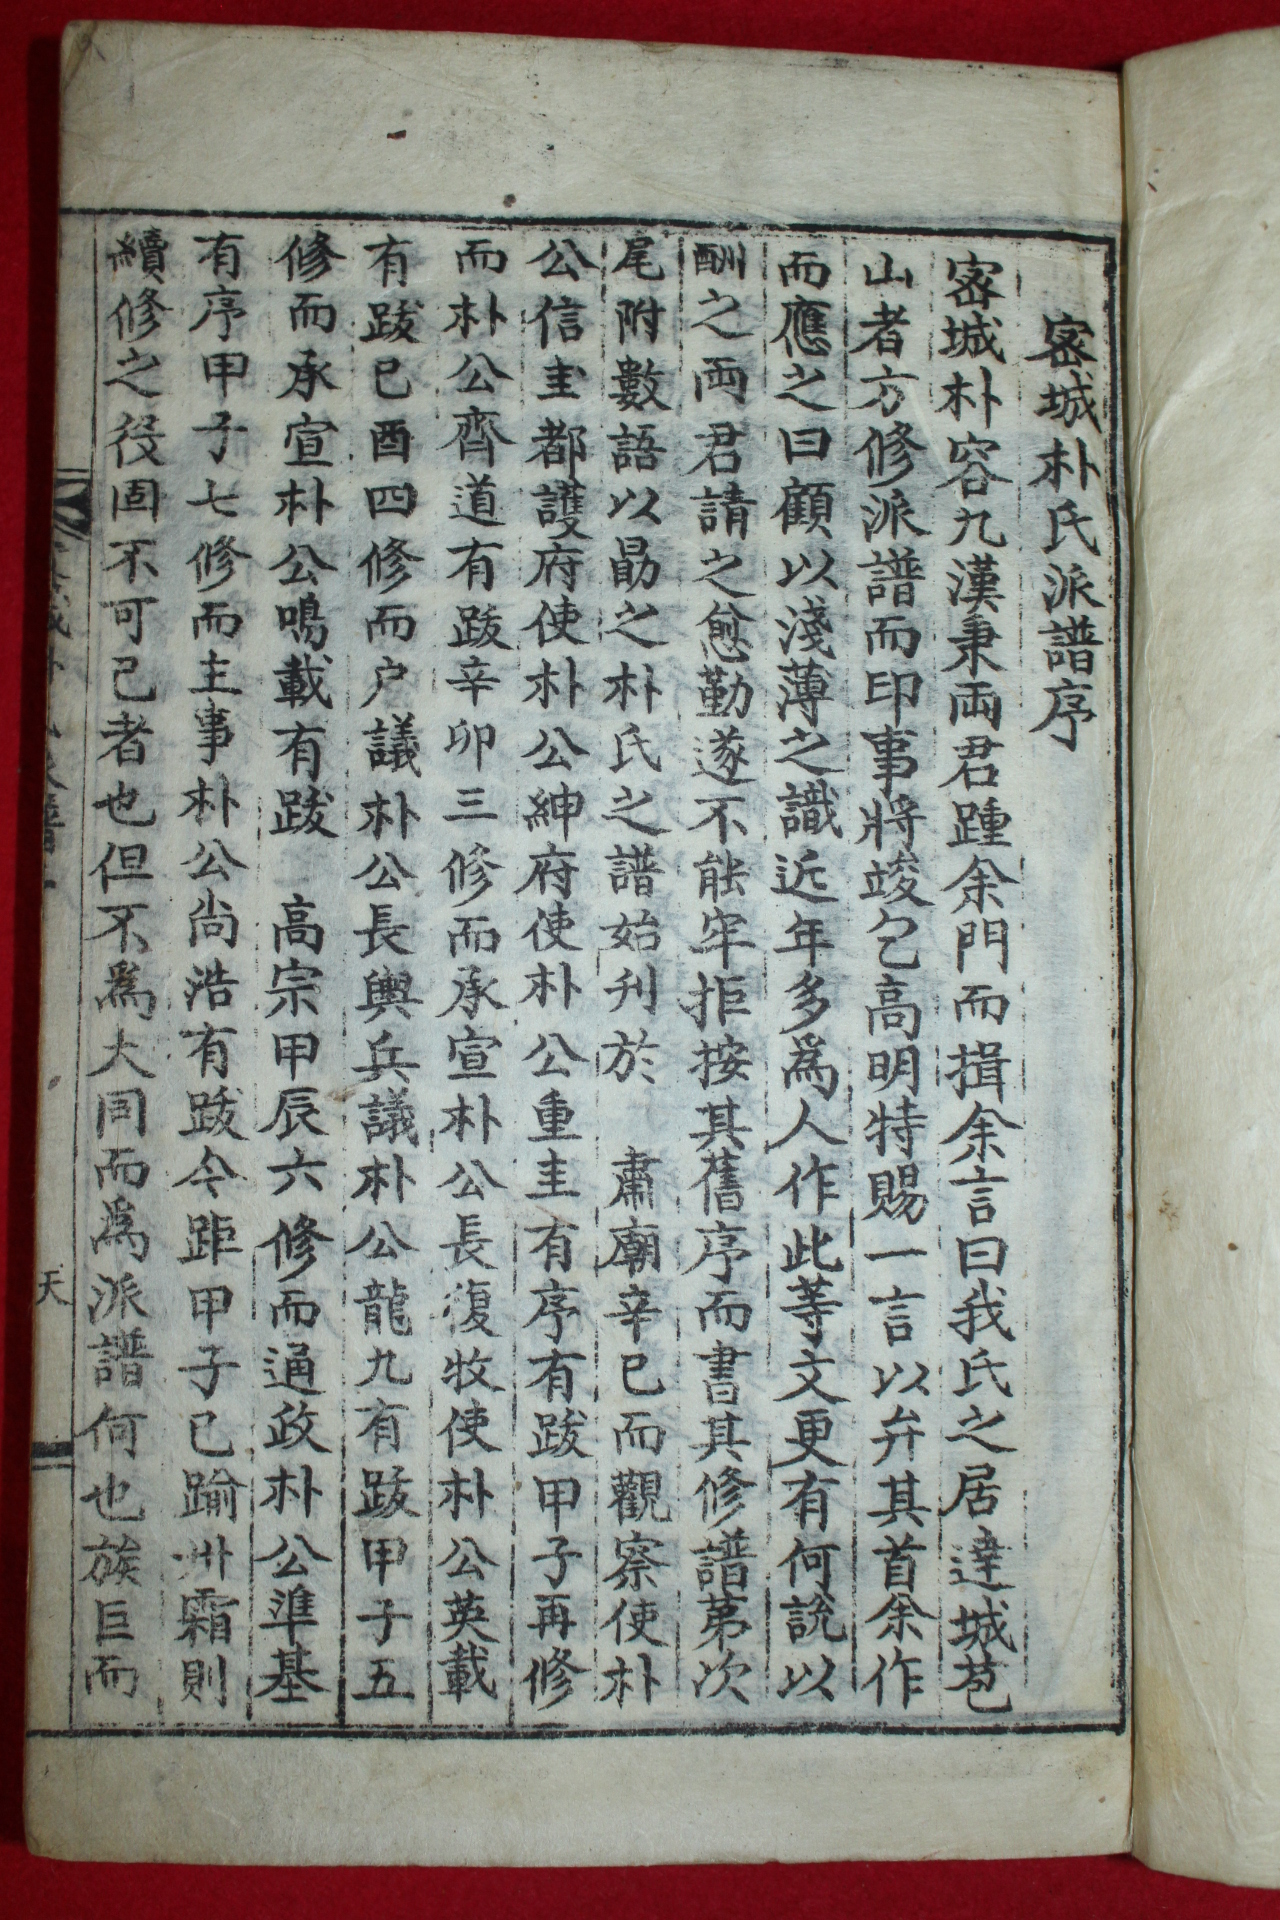 密城朴氏派譜序
密城朴容九漢秉兩君踵余門而揖余言曰我氏之居達城苞
山者方修派譜而印事將竣乞高明特賜一言以弁其首余作
而應之曰顧以淺薄之識近年多爲人作此等文更有何說以
酬之两君請之愈勤遂不能牢拒按其舊序而書其修譜第次
尾附數語以勗之朴氏之譜始刋於 肅廟辛巳而觀察使朴
公信圭都護府使朴公紳府使朴公重圭有序有跋甲子再修
而朴公齊道有跋辛卯三修而承宣朴公長復牧使朴公英載
有跋己酉四修而户議朴公長輿兵議朴公龍九有跋甲子五
修而承宣朴公鳴載有跋 高宗甲辰六修而通政朴公準基
有序甲子七修而主事朴公尙浩有跋今距甲子已踰卅霜則
續修之役固不可已者也但不爲大同而爲派譜何也族巨而
天